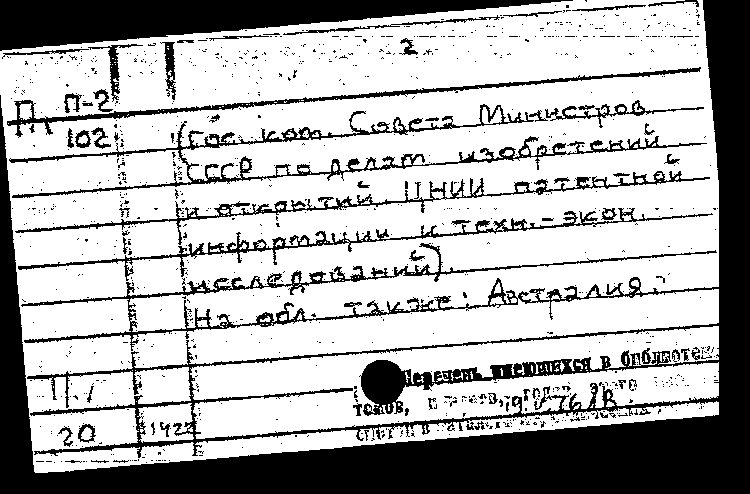 2
П П-2
102
(Гос. ком. Совета Министров
СССР по делам изобретений
и открытий. ЦНИИ патентной
информации и техн.-экон.
исследований).
На обл. также: Австралия.
Перечень имеющихся в библиотеке
томов,
20 1422